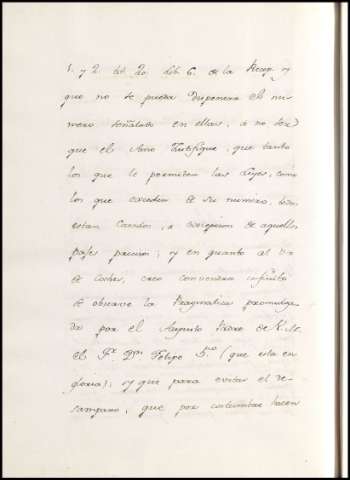 1. y 2. tit. 20. lib. 6. de la Recop.n y
que no se pueda disponer el nu-
mero señalado en ellas, a no ser
que el Amo Justifique, que tanto
los que le permiten las Leyes, como
los que exceden de su numero, todos
estan Casados, a excepcion de aquellos
pajes precisos; y en quanto al
de coches, creo convendra infinito
se observe la Pragmatica promulga-
da por el Augusto Padre de V. M.
el S.r D.n Felipe 5.to (que esta en
gloria); y que para evitar el de-
samparo, que por costumbre hacen